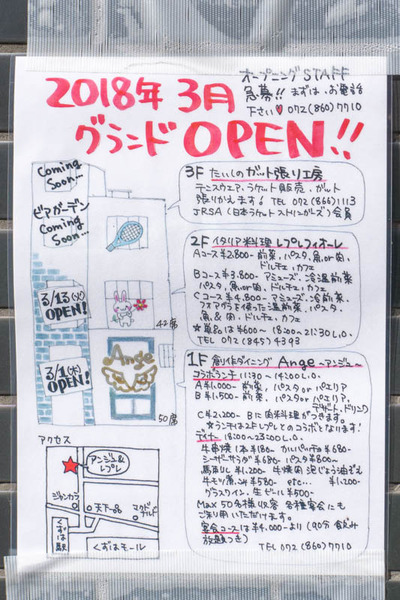 オープニングSTAFF
急募!! まずは、お電話
下さい♥ 072(860)7710
2018年 3月
グランド OPEN!!
Coming
Soon...
ビアガーデン
Coming
Soon...
3/13(火)
OPEN!
42席
3/1(木)
OPEN!
Ange
50席
3F たいしのガット張り工房
テニスウェア、ラケット販売、ガット
張りかえます! TEL 072(866)1113
JRSA(日本ラケットストリンガーズ)会員
2F イタリア料理 レプレフィオーレ
Aコース¥2.800- 前菜、パスタ、魚or肉、
ドルチェ、カフェ
Bコース¥3.800- アミューズ、冷温前菜
パスタ、魚or肉、ドルチェ、カフェ
Cコース¥4.800- アミューズ、冷前菜、
フォアグラを使った温前菜、パスタ、
魚&肉、ドルチェ、カフェ
☆単品は¥600〜 18:00〜21:30 L.O.
TEL 072(845)4393
1F 創作ダイニング Ange 〜アンジュ〜
コラボランチ 11:30〜14:00 L.O.
A ¥1.000- 前菜、パスタorパエリア
B ¥1.500- 前菜、パスタorパエリア、
デザート、ドリンク
C ¥2.200- Bに肉料理がつきます。
☆ランチは2Fレプレとのコラボとなります!
ディナー 18:00〜23:00 L.O.
牛串焼1本¥180- カルパッチョ¥680-
シーザーサラダ ¥680- パスタ¥800-
馬刺し¥1.200- 牛焼肉 泡じょう油そえ
牛モツ煮込み¥580- etc... ¥1.200-
グラスワイン、生ビール¥500-
Max 50名様収容 各種宴会にも
ご利用いただけます。
宴会コースは¥4.000-より(90分飲み
放題つき)
TEL 072(860)7710
アクセス
アンジュ&
レプレ
ジャンカラ
天下一品
マクド
ナルド
くずは
駅
くずはモール